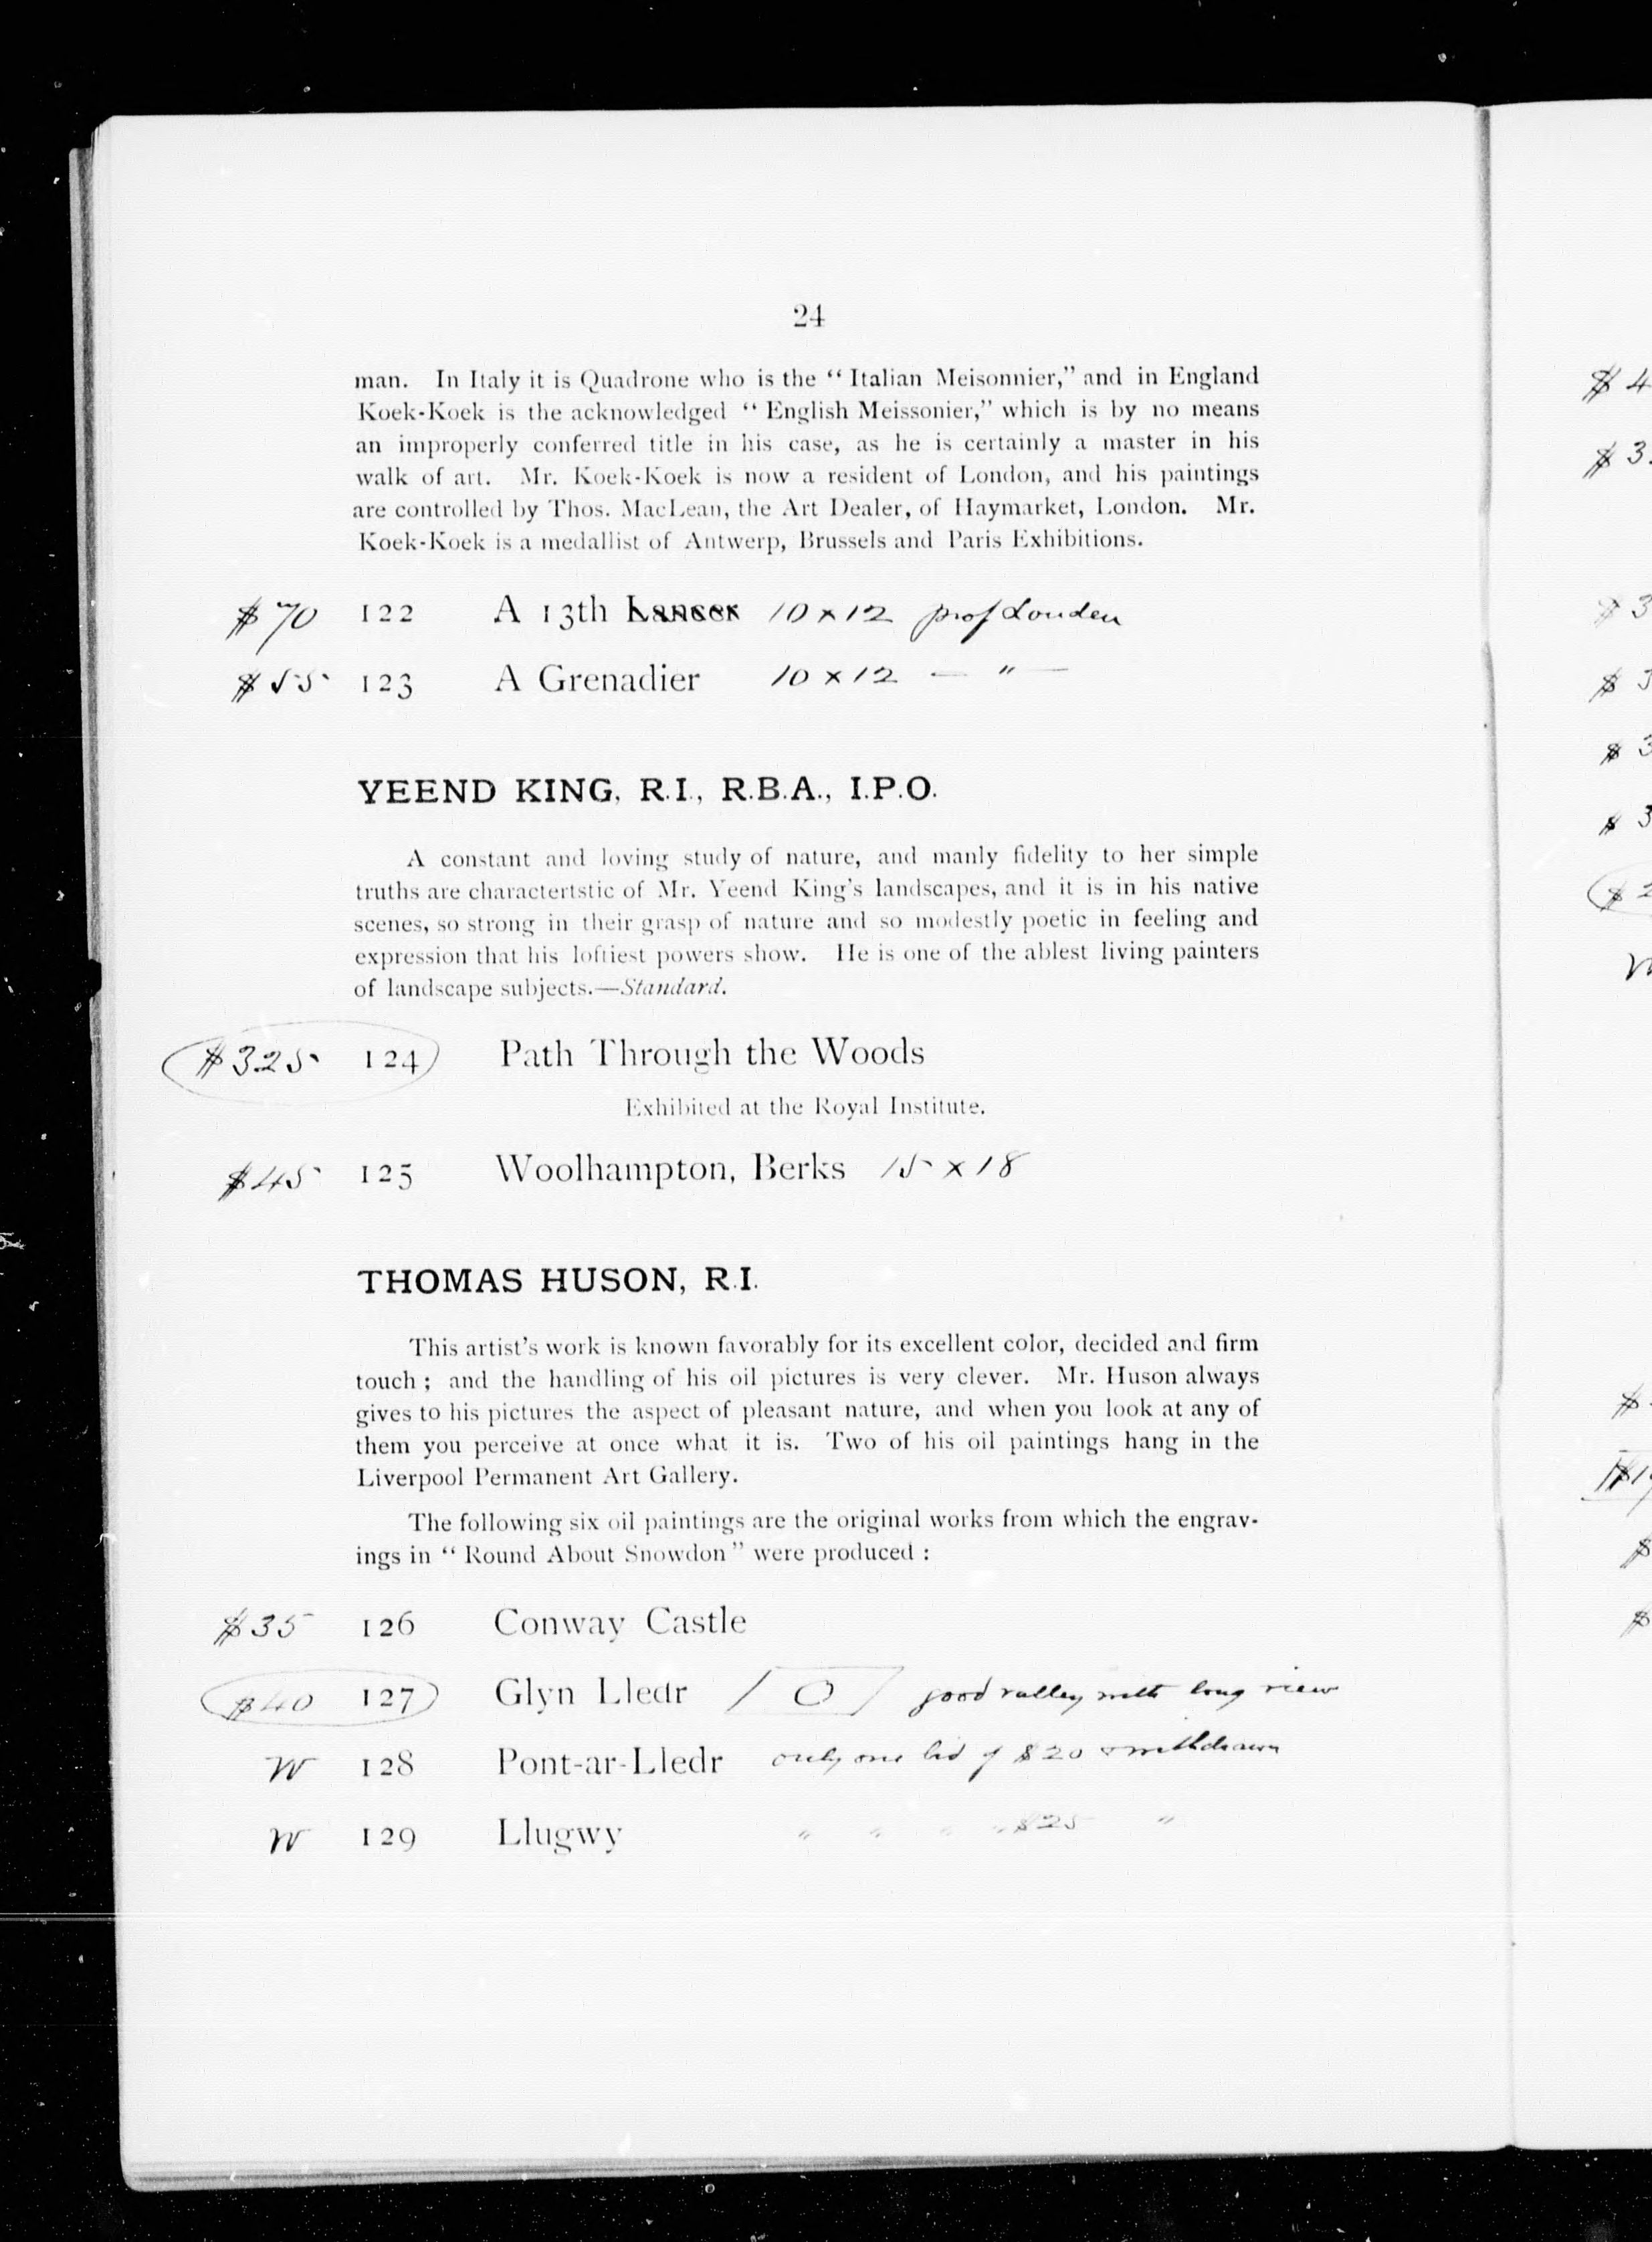 24
man. In Italy it is Quadrone who is the “ Italian Meisonnier,” and in England
Koek-Koek is the acknowledged “ English Meissonier,” which is by no means
an improperly conferred title in his case, as he is certainly a master in his
walk of art. Mr. Koek-Koek is now a resident of London, and his paintings
are controlled by Thos. MacLean, the Art Dealer, of Haymarket, London. Mr.
Koek-Koek is a medallist of Antwerp, Brussels and Paris Exhibitions.
$70 122 A 13th Lancer 10 x 12 prof Louden
$55 123 A Grenadier 10 x 12 — " —
YEEND KING, R.I., R.B.A., I.P.O.
A constant and loving study of nature, and manly fidelity to her simple
truths are charactertstic of Mr. Yeend King's landscapes, and it is in his native
scenes, so strong in their grasp of nature and so modestly poetic in feeling and
expression that his loftiest powers show. He is one of the ablest living painters
of landscape subjects.—Standard.
$325 124 Path Through the Woods
Exhibited at the Royal Institute.
$45 125 Woolhampton, Berks 15 x 18
THOMAS HUSON, R.I.
This artist's work is known favorably for its excellent color, decided and firm
touch ; and the handling of his oil pictures is very clever. Mr. Huson always
gives to his pictures the aspect of pleasant nature, and when you look at any of
them you perceive at once what it is. Two of his oil paintings hang in the
Liverpool Permanent Art Gallery.
The following six oil paintings are the original works from which the engrav-
ings in “ Round About Snowdon ” were produced :
$35 126 Conway Castle
$40 127 Glyn Lledr / O / good valley with long view
W 128 Pont-ar-Lledr only one bid of $20 & withdrawn
W 129 Llugwy " " " " $25 "